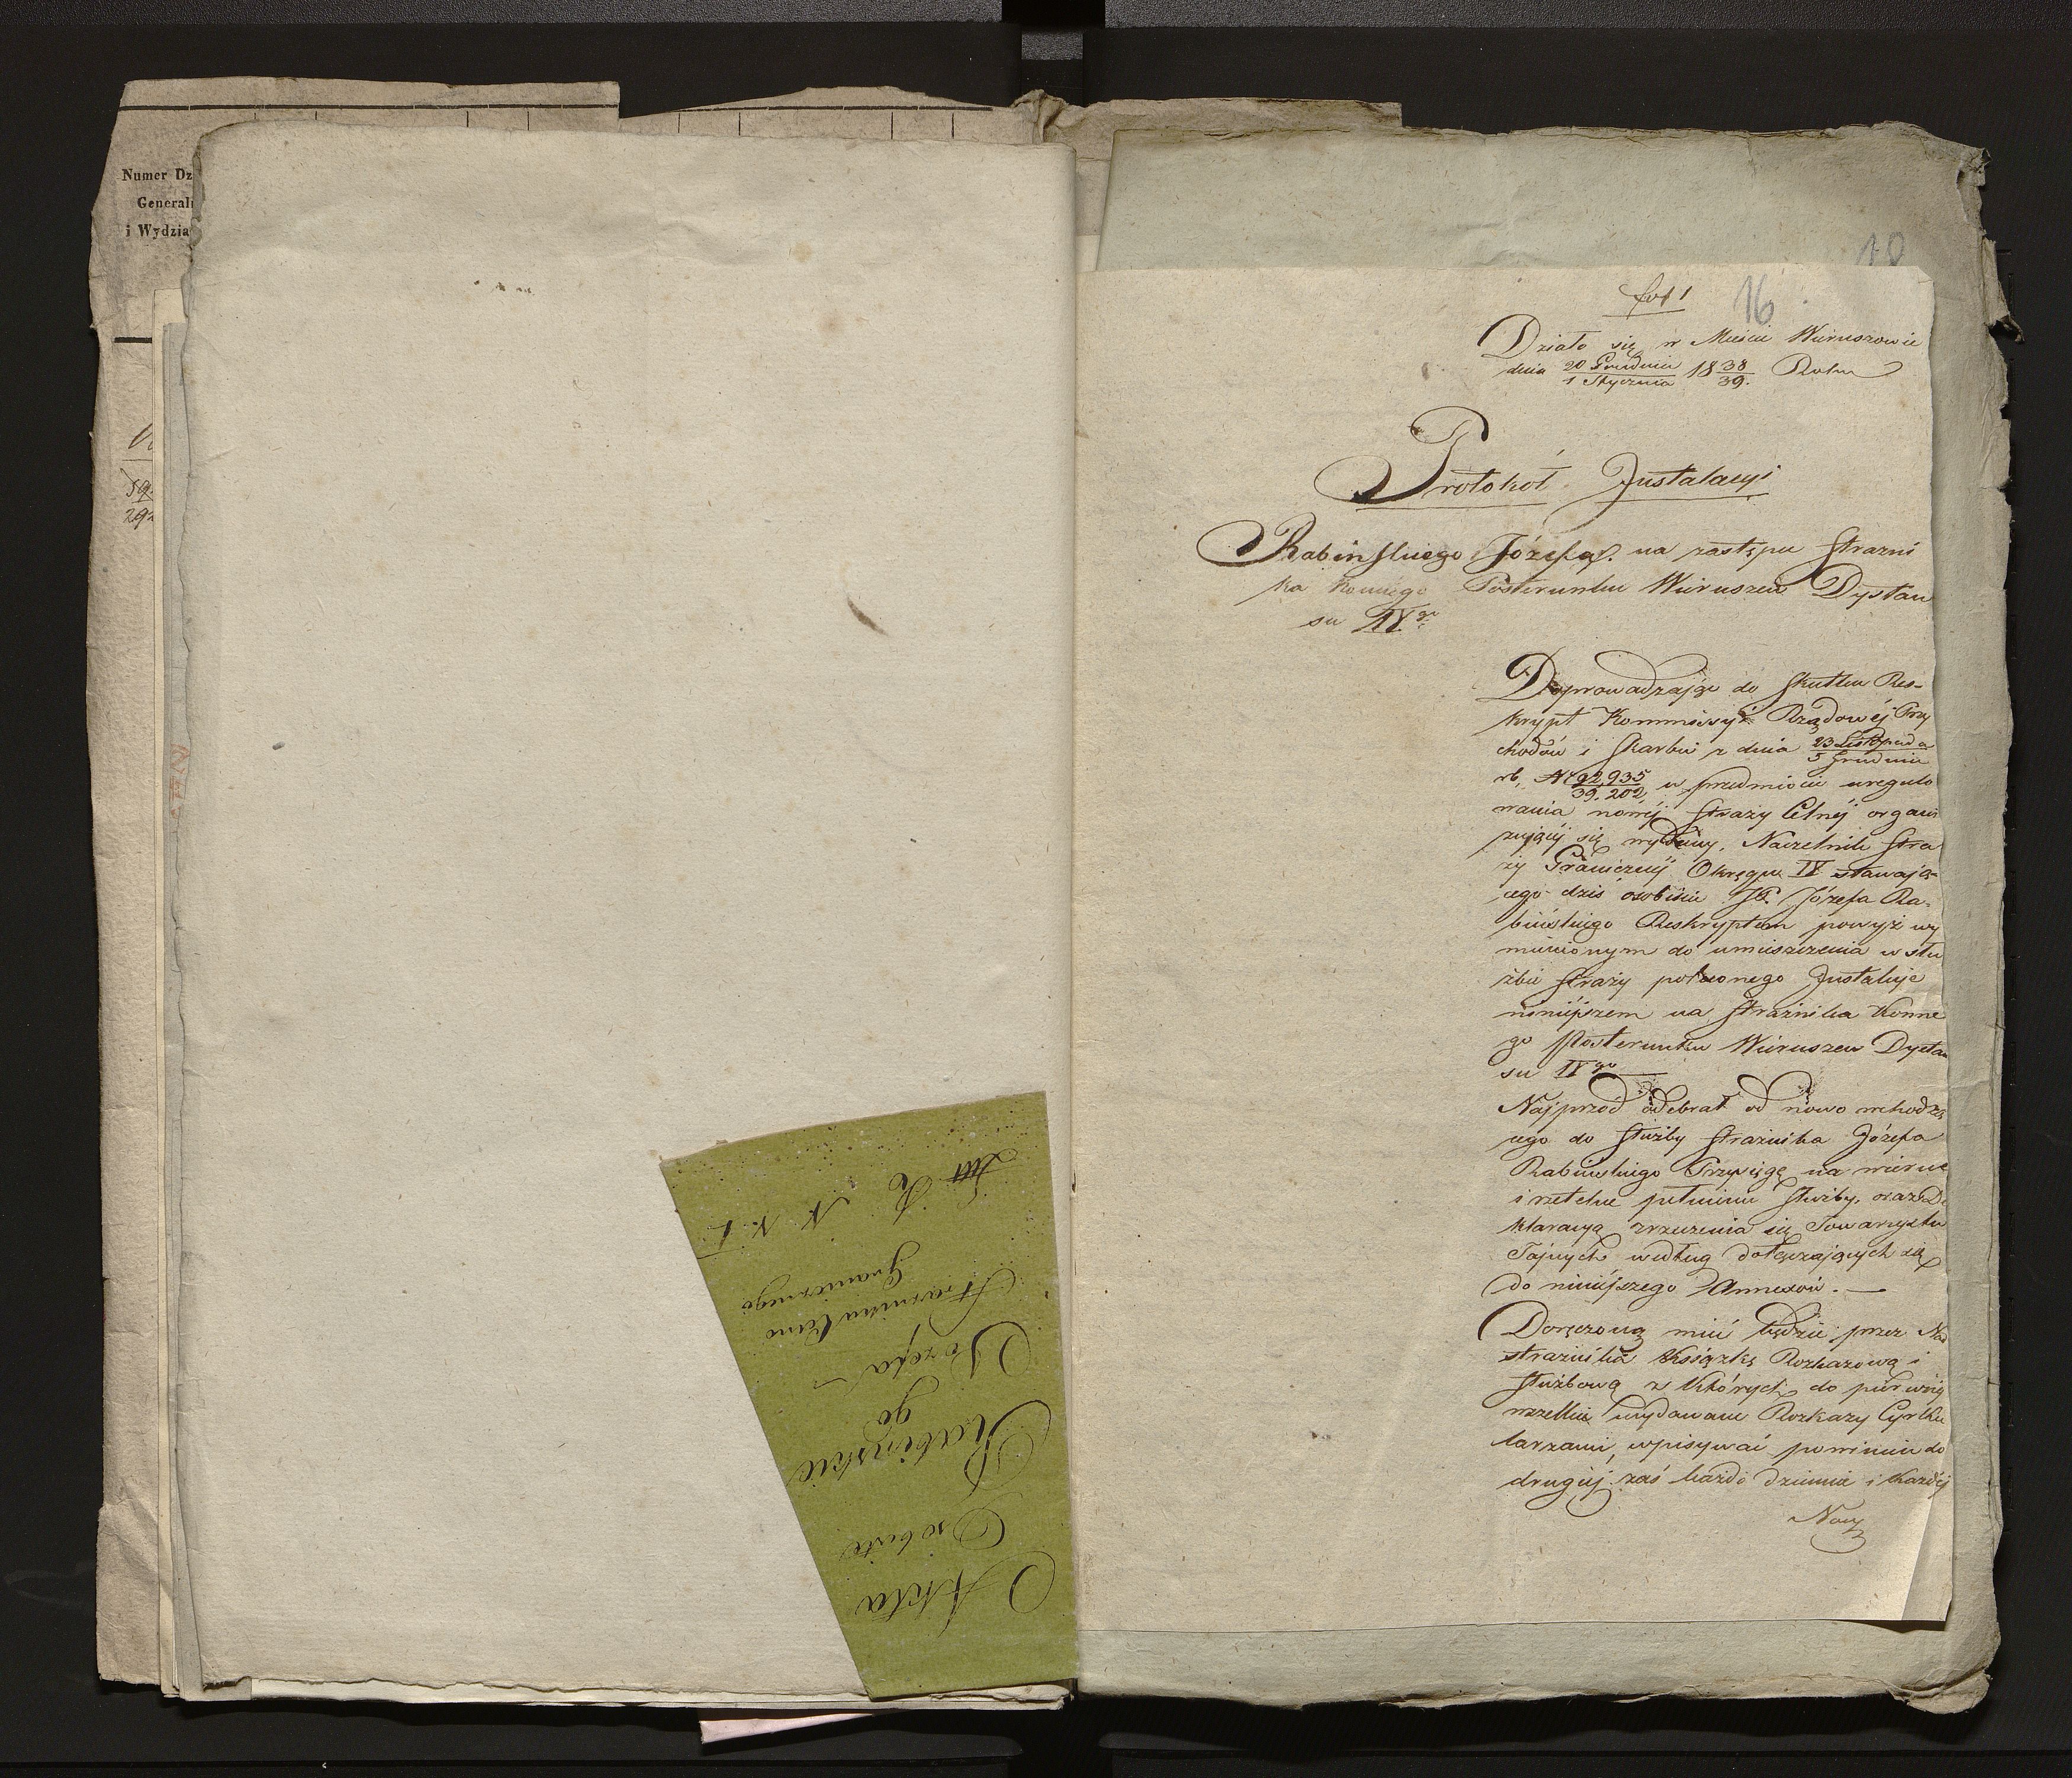 Numer Dz
General
i Wydzia
59.
292
Litt R N. 1.
Strażnika Celno
Granicznego
Józefa
Rabinskie
go
Osobiste
Akta
10
fol 1
16
Działo się w Mieście Wieruszowie
dnia 20 Grudnia / 1 Stycznia 18 38/39. Roku
Protokół Justalacyi
Rabinskiego Józefa. na zastępce Strażni
ka Konnego Posterunku Wieruszew Dystan
su IVgo
Doprowadzając do skutku Res-
krypt Kommissyi Rządowéj Przy
chodów i Skarbu z dnia 23 Listopada / 5 Grudnia
rb, No 92,935 / 39.202 w przedmiocie uregulo
wania nowéj Straży Celnéj organi
zującéj się wydany, Naczelnik Stra
ży Granicznéj Okręgu IV stawają-
cego dziś osobiście JP. Józefa Ra-
bińskiego Reskryptem powyż wy
mienionym do umieszczenia w słu
żbie straży poleconego Justaluje
niniéjszem na Strażnika Konne
go Posterunku Wieruszew Dystan
su IVgo
Najprzód odebrał od nowo wchodzą
cego do służby Strażnika Józefa
Rabinskiego Przysięgę na wierne
i rzetelne pełnienie służby, oraz De
klaracyą zrzeczenia się Towarzystw
Tajnych według dołączających się
do niniéjszego Annexów. —
Doręczoną mieć będzie przez Nad
strażnika Książkę Rozkazową i
służbową z których do pierwszéj
wszelkie wydawane Rozkazy Cyrku
larzami, wpisywać powinien do
drugiéj zaś każdo dziennie i każdéj
Nocy